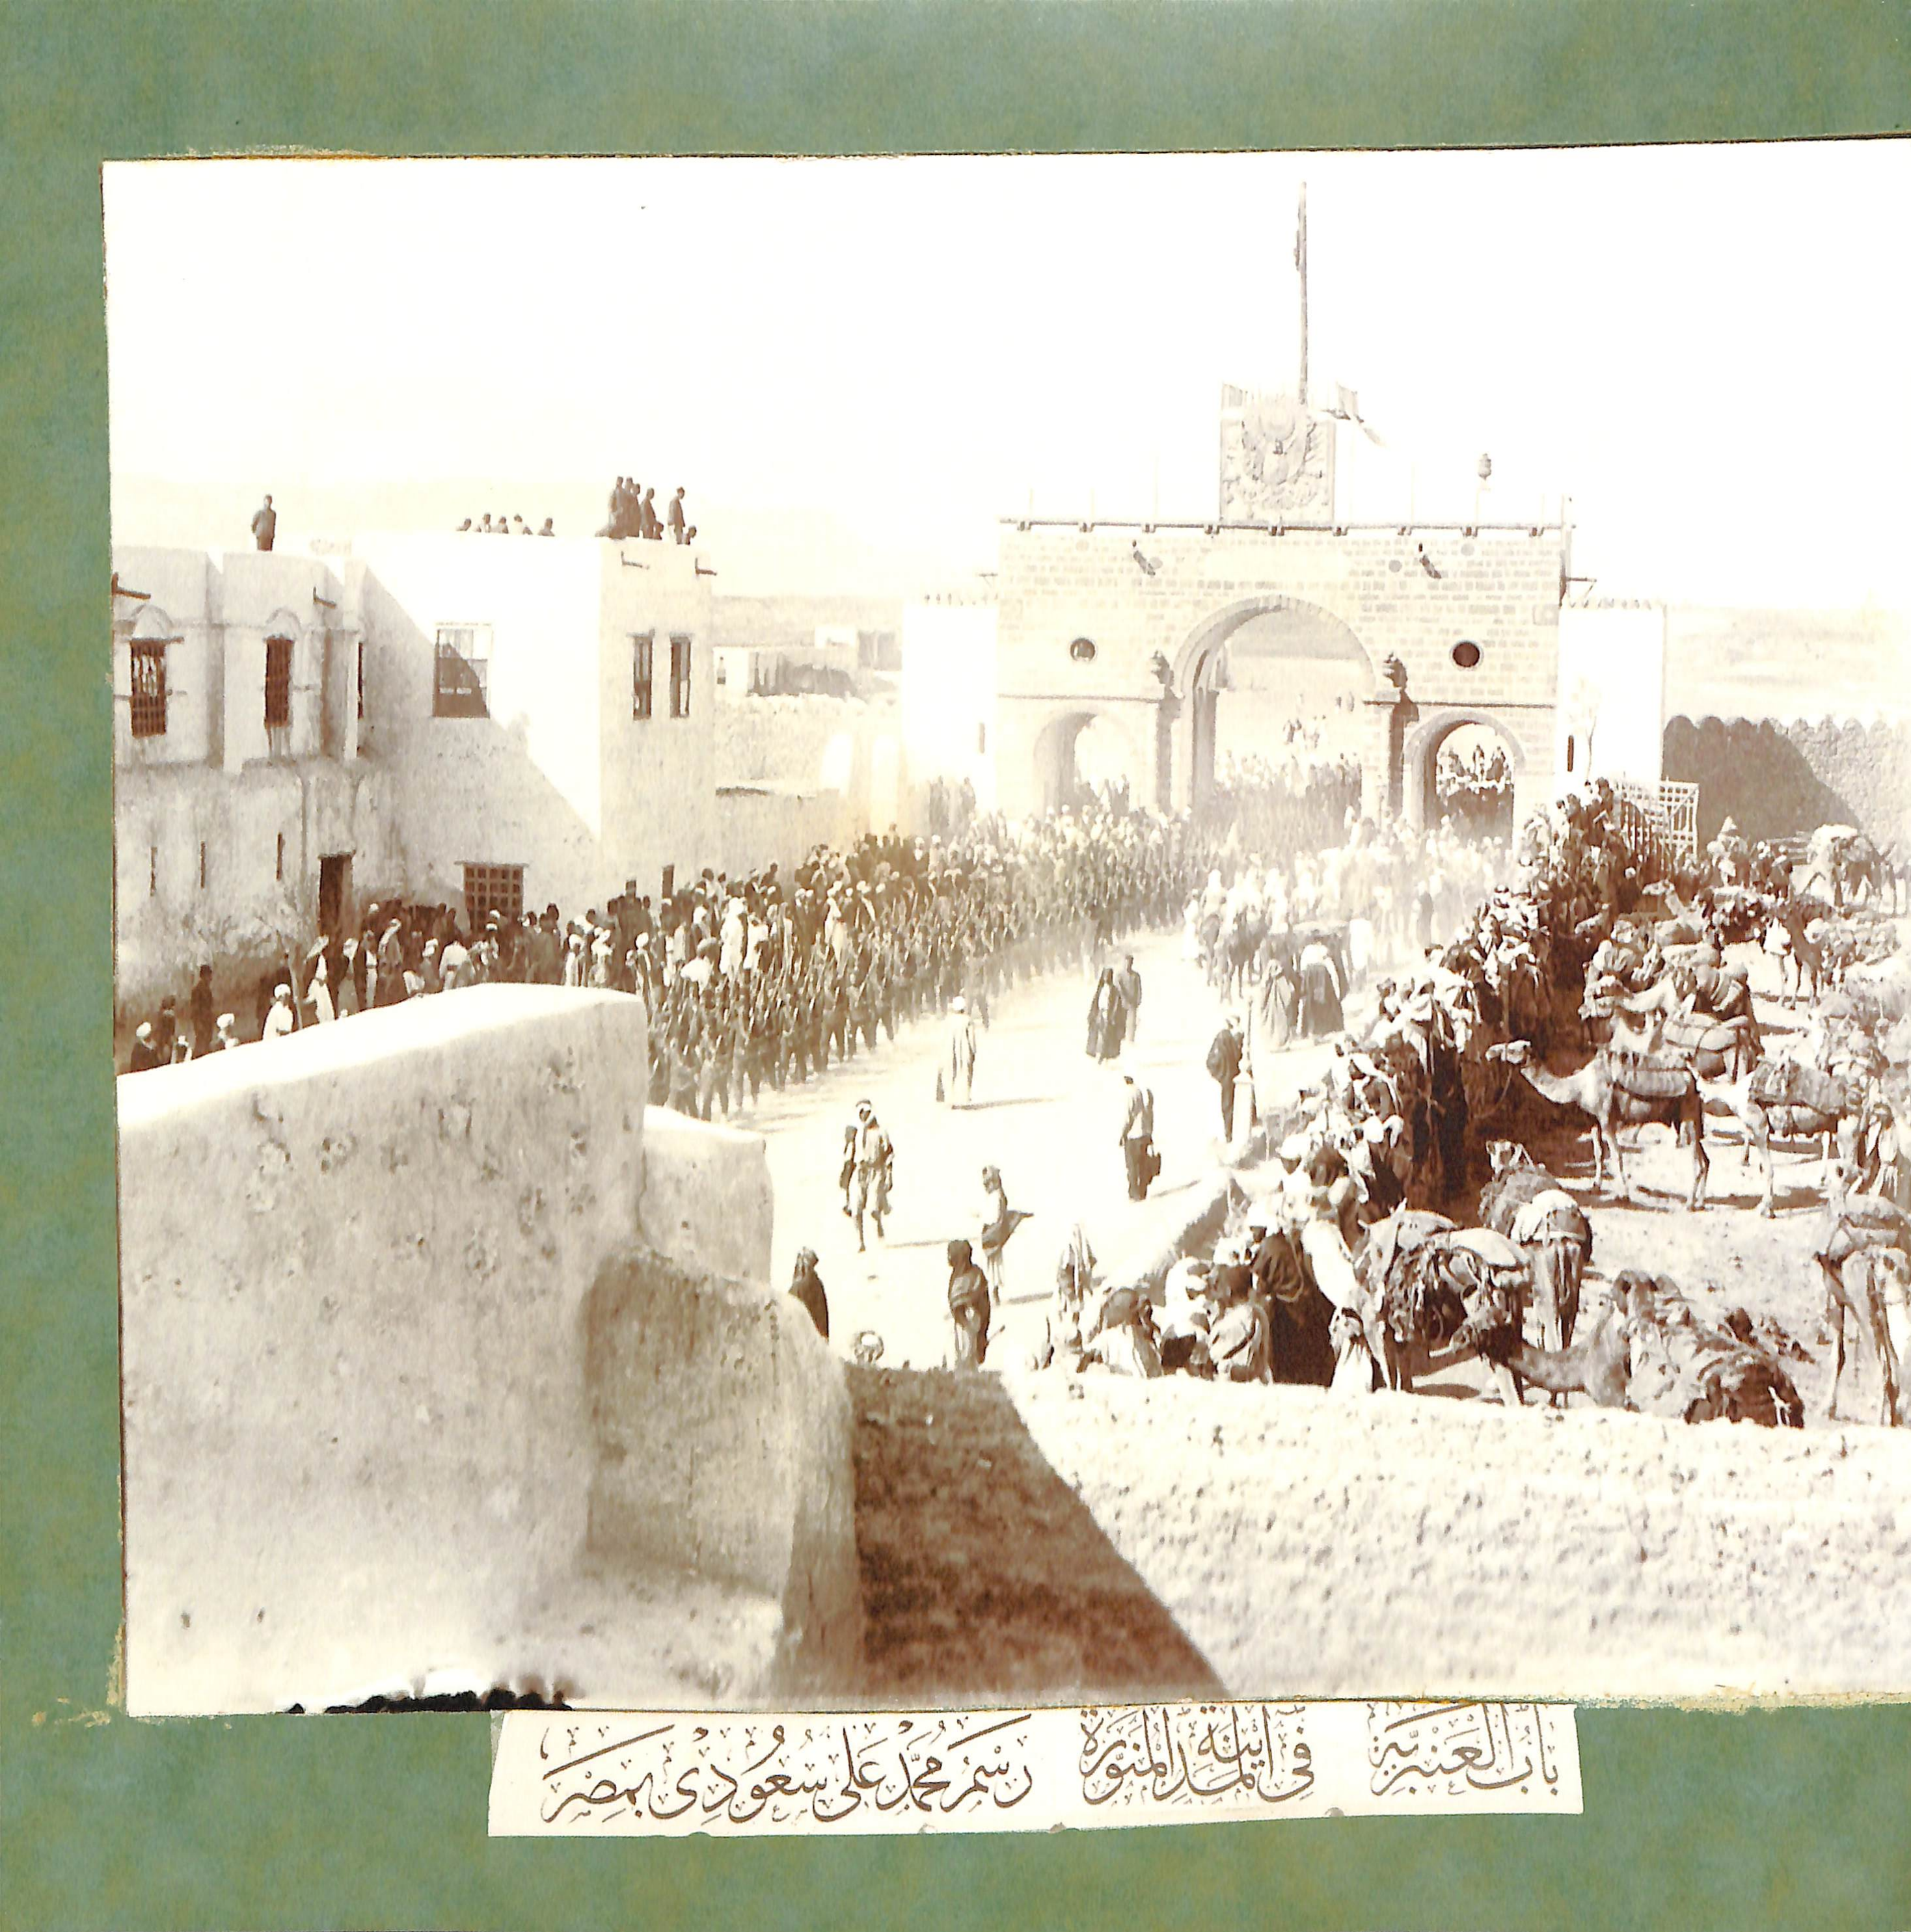 بابُ العَنْبَرِيَّة فِي المَدِينَةِ المُنَوَّرَة رَسْمُ مُحَمَّدْ عَلى سُعُودِى بِمِصْرَ